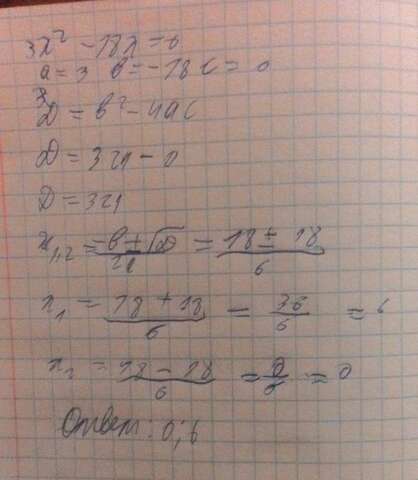 3x² - 18x = 0
a = 3 в = -18 c = 0
D = в² - 4ac
D = 324 - 0
D = 324
x₁,₂ = -в ± √D / 2a = 18 ± 18 / 6
x₁ = 18 + 18 / 6 = 36 / 6 = 6
x₂ = 18 - 18 / 6 = 0 / 6 = 0
Ответ: 0; 6